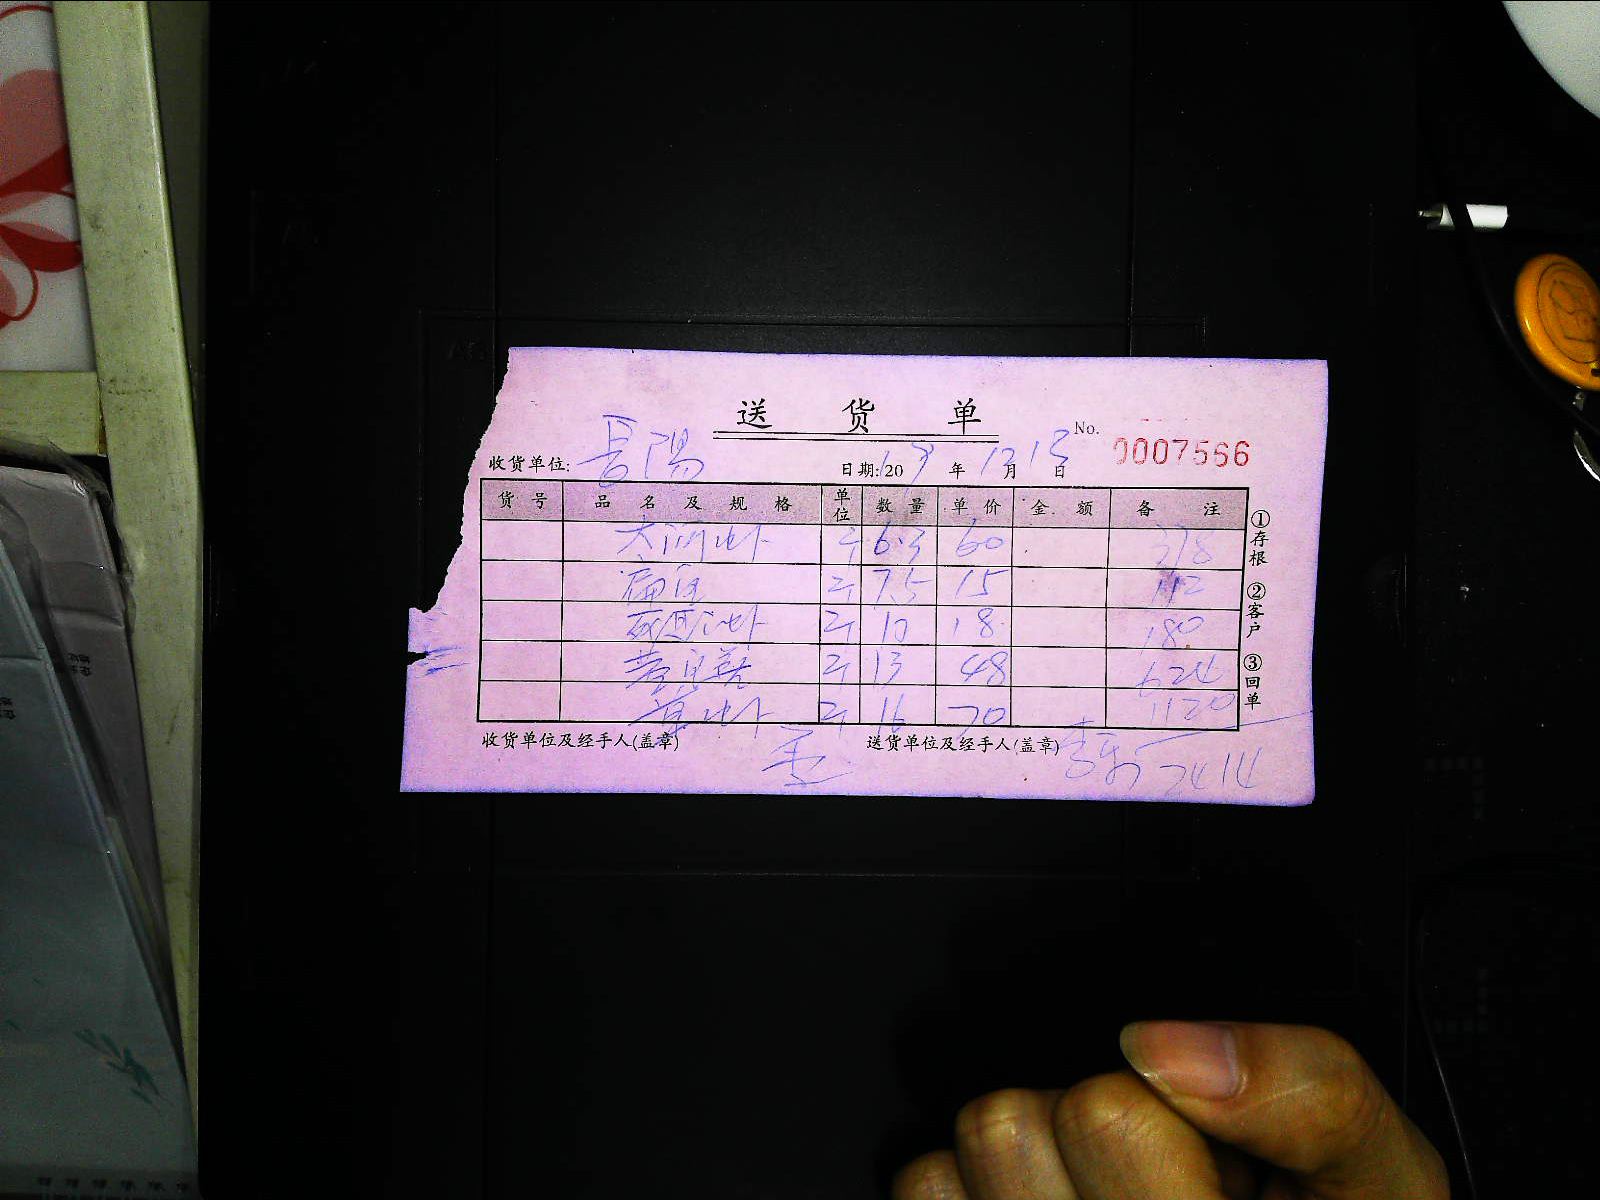 送 货 单
No. 0007566
收货单位: 日期:20 年 12月 日
货 号 品 名 及 规 格 单位 数 量 单 价 金 额 备 注
斤 6.3 60 378
斤 7.5 15 112
斤 10 18 180
斤 13 48 624
草虾 斤 16 70 1120
收货单位及经手人(盖章) 送货单位及经手人(盖章) 2414
①存根 ②客户 ③回单